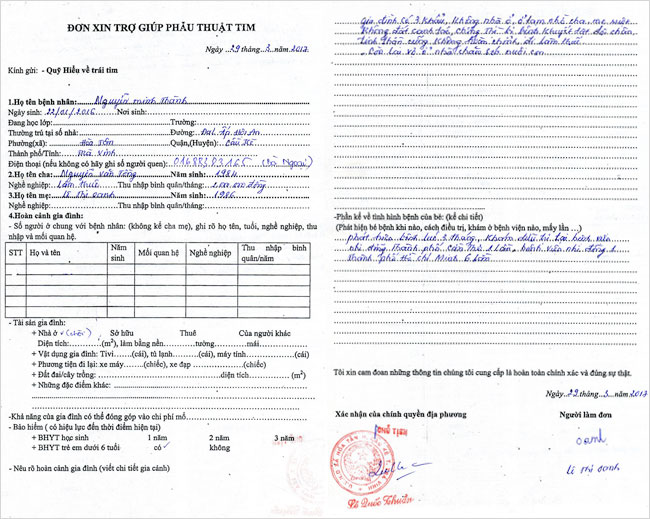 ĐƠN XIN TRỢ GIÚP PHẪU THUẬT TIM
Ngày 29 tháng 3 năm 2017
Kính gửi: - Quỹ Hiểu về trái tim
1.Họ tên bệnh nhân: Nguyễn minh Thành
Ngày sinh: 22/01/2016 Nơi sinh:
Đang học lớp: Trường:
Thường trú tại số nhà: Đường:
Phường(xã): Hòa Tân Quận,(Huyện): Cầu Kè
Thành phố/Tỉnh: Trà Vinh
Điện thoại (nếu không có hãy ghi số người quen): (Bà Ngoại)
2.Họ tên cha: Nguyễn văn Tổng Năm sinh: 1984
Nghề nghiệp: Làm thuê Thu nhập bình quân/tháng: đồng
3.Họ tên mẹ: Lê Thị oanh Năm sinh: 1986
Nghề nghiệp: Thu nhập bình quân/tháng:
4.Hoàn cảnh gia đình:
- Số người ở chung với bệnh nhân: (không kể cha mẹ), ghi rõ họ tên, tuổi, nghề nghiệp, thu
nhập và mối quan hệ.
STT Họ và tên Năm sinh Mối quan hệ Nghề nghiệp Thu nhập bình quân/năm
- Tài sản gia đình:
+ Nhà ở Sở hữu Thuê Của người khác
Diện tích: (m²), làm bằng nền tường mái
+ Vật dụng gia đình: Tivi (cái), tủ lạnh (cái), máy tính (cái)
+ Phương tiện đi lại: xe máy (chiếc), xe đạp (chiếc)
+ Đất đai/cây trồng: diện tích (m²)
+ Những đặc điểm khác:
-Khả năng của gia đình có thể đóng góp vào chi phí mổ
- Bảo hiểm ( có hiệu lực đến thời điểm hiện tại)
+ BHYT học sinh 1 năm 2 năm 3 năm
+ BHYT trẻ em dưới 6 tuổi có không
- Nêu rõ hoàn cảnh gia đình (viết chi tiết gia cảnh)
gia đình có 3 khẩu, không nhà ở, ở tạm nhà cha mẹ
không đất canh tác, chồng thì bị bệnh khuyết tật
tinh thần cũng không hoàn chỉnh, đi làm thuê
Còn lại vợ ở nhà chăm sóc nuôi con
-Phần kể về tình hình bệnh của bé: (kể chi tiết)
(Phát hiện bé bệnh khi nào, cách điều trị, khám ở bệnh viện nào, mấy lần ...)
phát hiện bệnh lúc 3 tháng, khám điều trị tại bệnh viện
nhi đồng thành phố Cần Thơ 1 lần, bệnh viện nhi đồng 1
thành phố Hồ Chí Minh 6 lần
Tôi xin cam đoan những thông tin chúng tôi cung cấp là hoàn toàn chính xác và đúng sự thật.
Ngày 29 tháng 3 năm 2017
Xác nhận của chính quyền địa phương Người làm đơn
CHỦ TỊCH
oanh
Lê Thị oanh
Lê Quốc Thuần